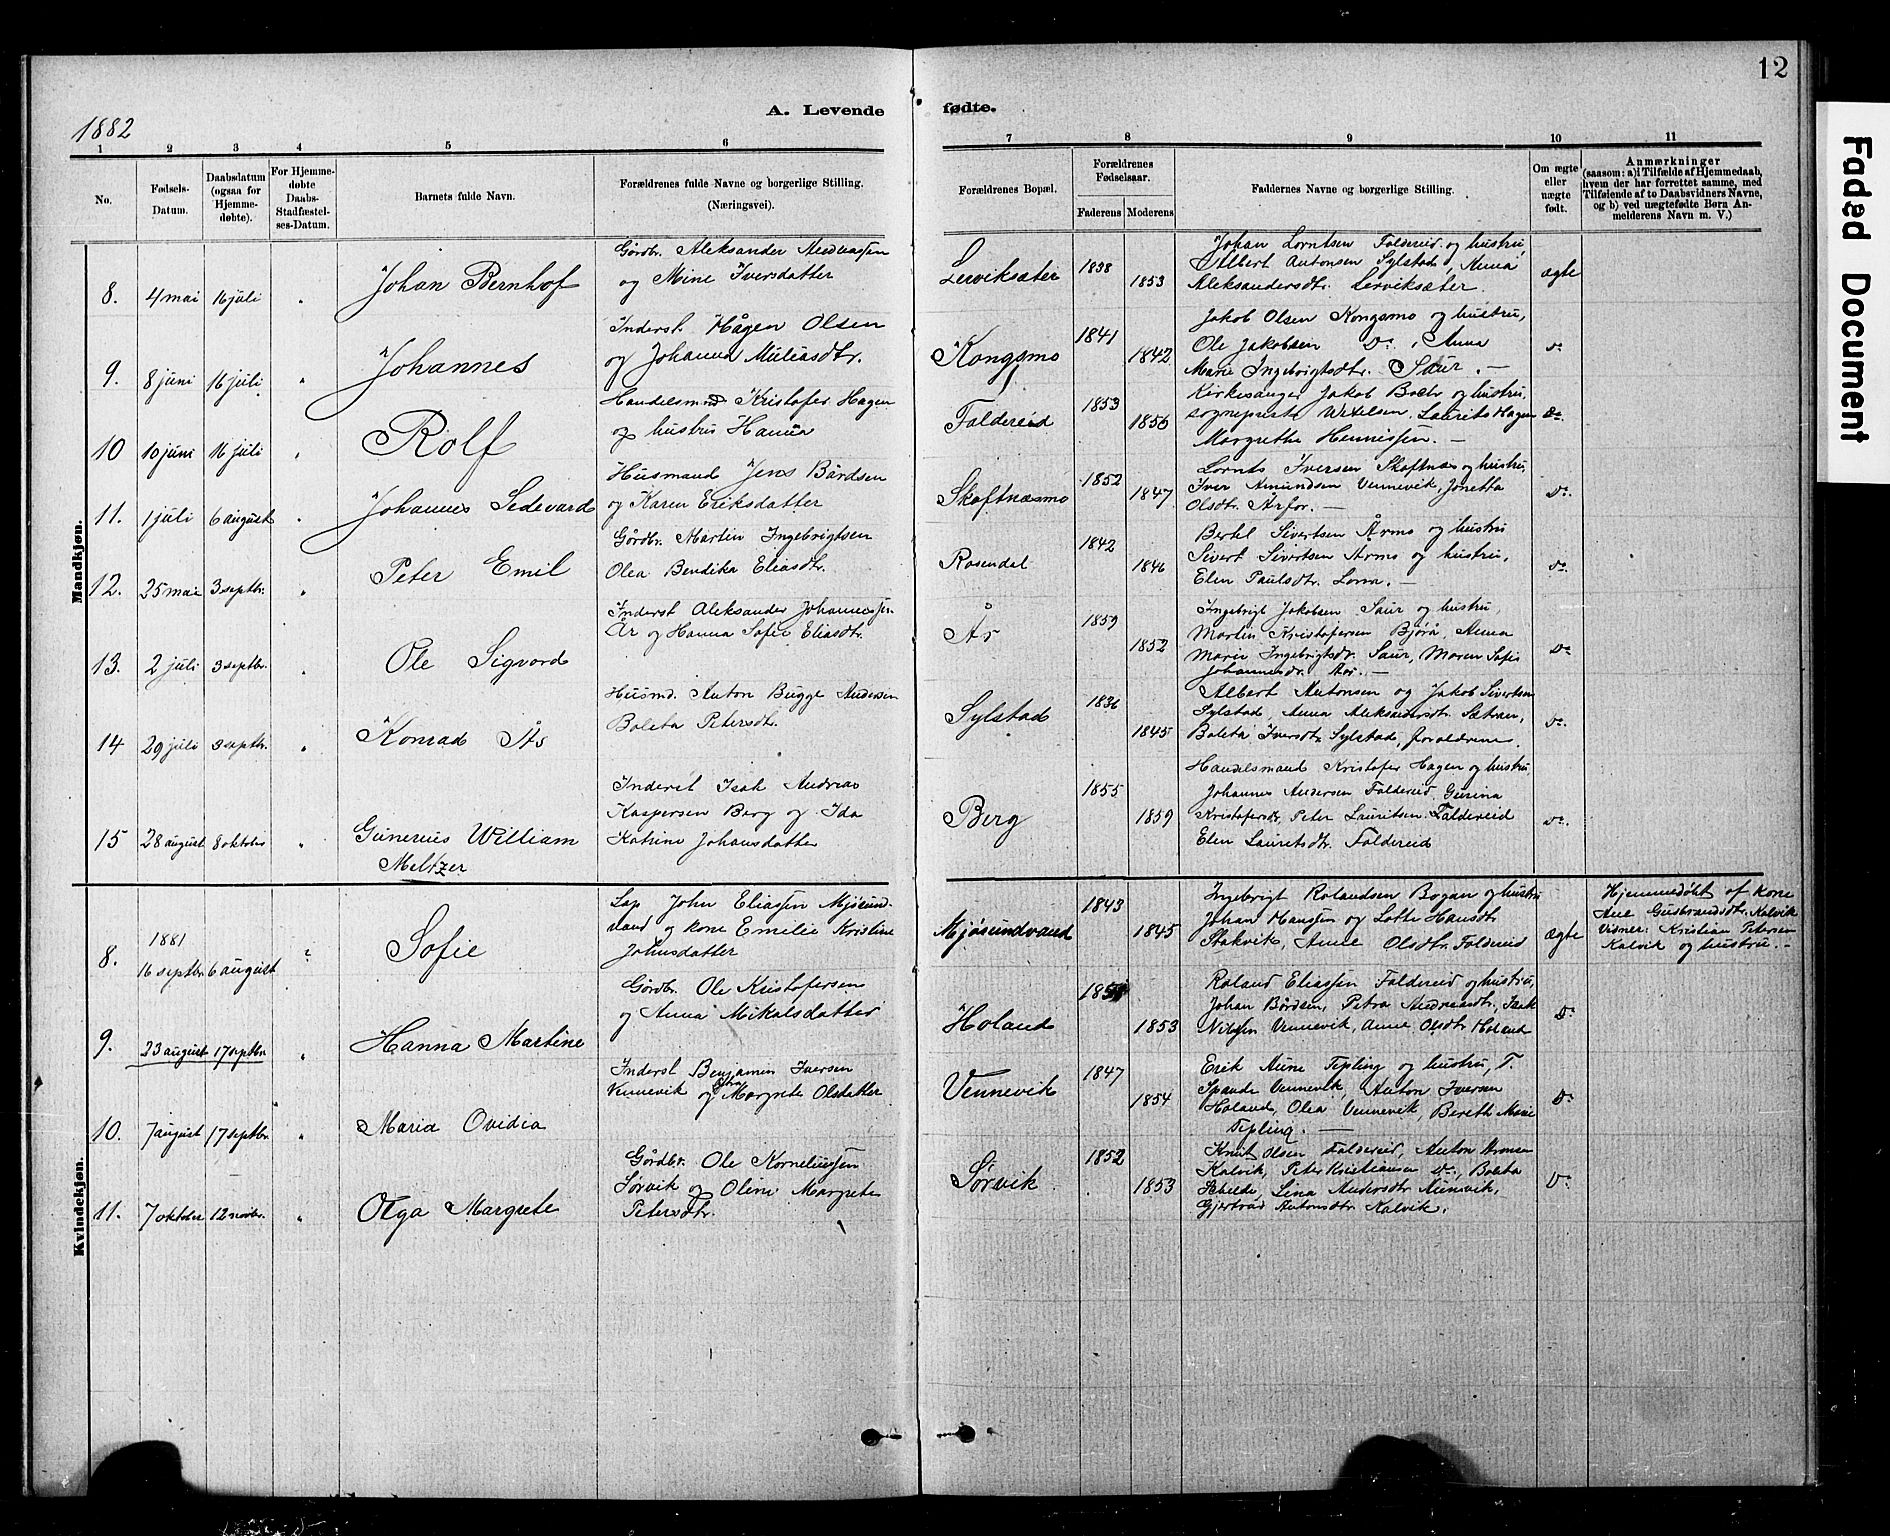 12
Faded Document
1882
A. Levende fødte.
1 2 3 4 5 6 7 8 9 10 11
No.
Fødsels-Datum.
Daabsdatum (ogsaa for Hjemme-døbte).
For Hjemme-døbte Daabs-Stadfæstel-ses-Datum.
Barnets fulde Navn.
Forældrenes fulde Navne og borgerlige Stilling. (Næringsvei).
Forældrenes Bopæl.
Forældrenes Fødselsaar.
Faderens Moderens
Faddernes Navne og borgerlige Stilling.
Om ægte eller uægte født.
Anmærkninger
(saasom: a) i Tilfælde af Hjemmedaab,
hvem der har forrettet samme, med
Tilføiende af to Daabsvidners Navne,
og b) ved uægtefødte Børn An-
melderens Navn m. V.)
Mandkjøn.
8. 4 mai 16 juli " Johan Bernhof
Gårdbr. Aleksander Andreassen
og Mine Iversdatter
Lerviksæter 1838 1853
Johan Lorntsen Foldereid og hustru
Albert Antonsen Sylstad, Anna
Aleksandersdtr. Lerviksæter.
ægte
9. 8 juni 16 juli " Johannes
Inderst. Hågen Olsen
og Johanna Miliasdtr.
Kongsmo 1841 1842
Jakob Olsen Kongsmo og hustru,
Ole Jakobsen Do, Anna
Marie Ingebrigtsdtr. Saur. —
Do
10 10 juni 16 juli " Rolf
Handelsmnd Kristofer Hagen
og hustru Hanna
Foldereid 1853 1856
Kirkesanger Jakob Bøckr og hustru,
sogneprest Wexelsen, Laurits Hagen
Margrethe Hennissen. —
Do
11. 1 juli 6 august " Johannes Sedevard
Husmand Jens Bårdsen
og Karen Eriksdatter
Skoftnæsmo 1852 1847
Lornts Iversen Skoftnæs og hustru,
Iver Amundsen Vennevik, Jonetta
Olsdtr. Arfor. —
Do.
12. 25 mai 3 septbr. " Peter Emil
Gårdbr. Martin Ingebrigtsen
Olea Bendika Eliasdtr.
Rosendal 1842 1846
Bertel Sivertsen Årmo og hustru
Sivert Sivertsen Årmo og hustru,
Elen Paulsdtr. Lona. —
Do.
13. 2 juli 3 septbr. " Ole Sigvard
Inderst Aleksander Johannessen
År og Hanna Sofie Eliasdtr.
År 1859 1852
Ingebrigt Jakobsen Saur og hustru,
Martin Kristofersen Bjørå, Anna
Marie Ingebrigtsdtr. Saur, Maren Sofie
Johannesdtr. År. —
Do
14 29 juli 3 septbr. " Konrad Ås
Husmd. Anton Bugge Andersen
Boleta Petersdtr.
Sylstad 1836 1845
Albert Antonsen og Jakob Sivertsen
Sylstad, Anna Aleksandersdtr. Sætran,
Boleta Iversdtr. Sylstad, forældrene.
Do.
15 28 august 8 oktober " Gunerius William
Meltzer
Inderst Isak Andreas
Kaspersen Berg og Ida
Katrine Johansdatter
Berg 1855 1859
Handelsmand Kristofer Hagen og hustru,
Johannes Andersen Foldereid, Gurina
Kristofersdtr. Peter Lauritsen Foldereid
Elen Lauritsdtr. Foldereid
Do.
Kvindekjøn.
8. 1881
16 septbr. 6 august " Sofie
Lap John Eliassen Mjøsund-
vand og kone Emelie Kristine
Johnsdatter
Mjøsundvand 1843 1845
Ingebrigt Rolandsen Bogan og hustru
Johan Hanssen og Lotte Hansdtr
Stokvik, Amle Olsdtr. Foldereid
ægte
Hjemmedøbt af kone
Ane Gusbrandsdtr. Kalvik
Visner: Kristian Petersen
Kalvik og hustru. —
9. 23 august 17 septbr. " Hanna Martine
Gårdbr. Ole Kristofersen
og Anna Mikalsdatter
Holand 1853
Roland Eliassen Foldereid og hustru,
Johan Bårdsen, Petra Andreasdtr., Isak
Nilssen Vennevik, Anne Olsdtr Holand
Do
10. 7 august 17 septbr. " Maria Ovidia
Inderst Benjamin Iversen
Vennevik og Margrete Olsdatter
Vennevik 1847 1854
Erik Aune Tepling og hustru, T.
Spande Vennevik, Anton Iversen
Holand, Olea Vennevik, Bereth Mine
Tepling. —
Do
11. 7 oktober 12 novbr. " Olga Margrete
Gårdbr. Ole Korneliussen
Sørvik og Oline Margrete
Petersdtr.
Sørvik 1852 1853
Knut Olsen Foldereid, Anton Aronsen
Kalvik, Peter Kristiansen Do, Boleta
Lina Andersdtr
Gjertrud Antonsdtr. Kalvik.
Do.